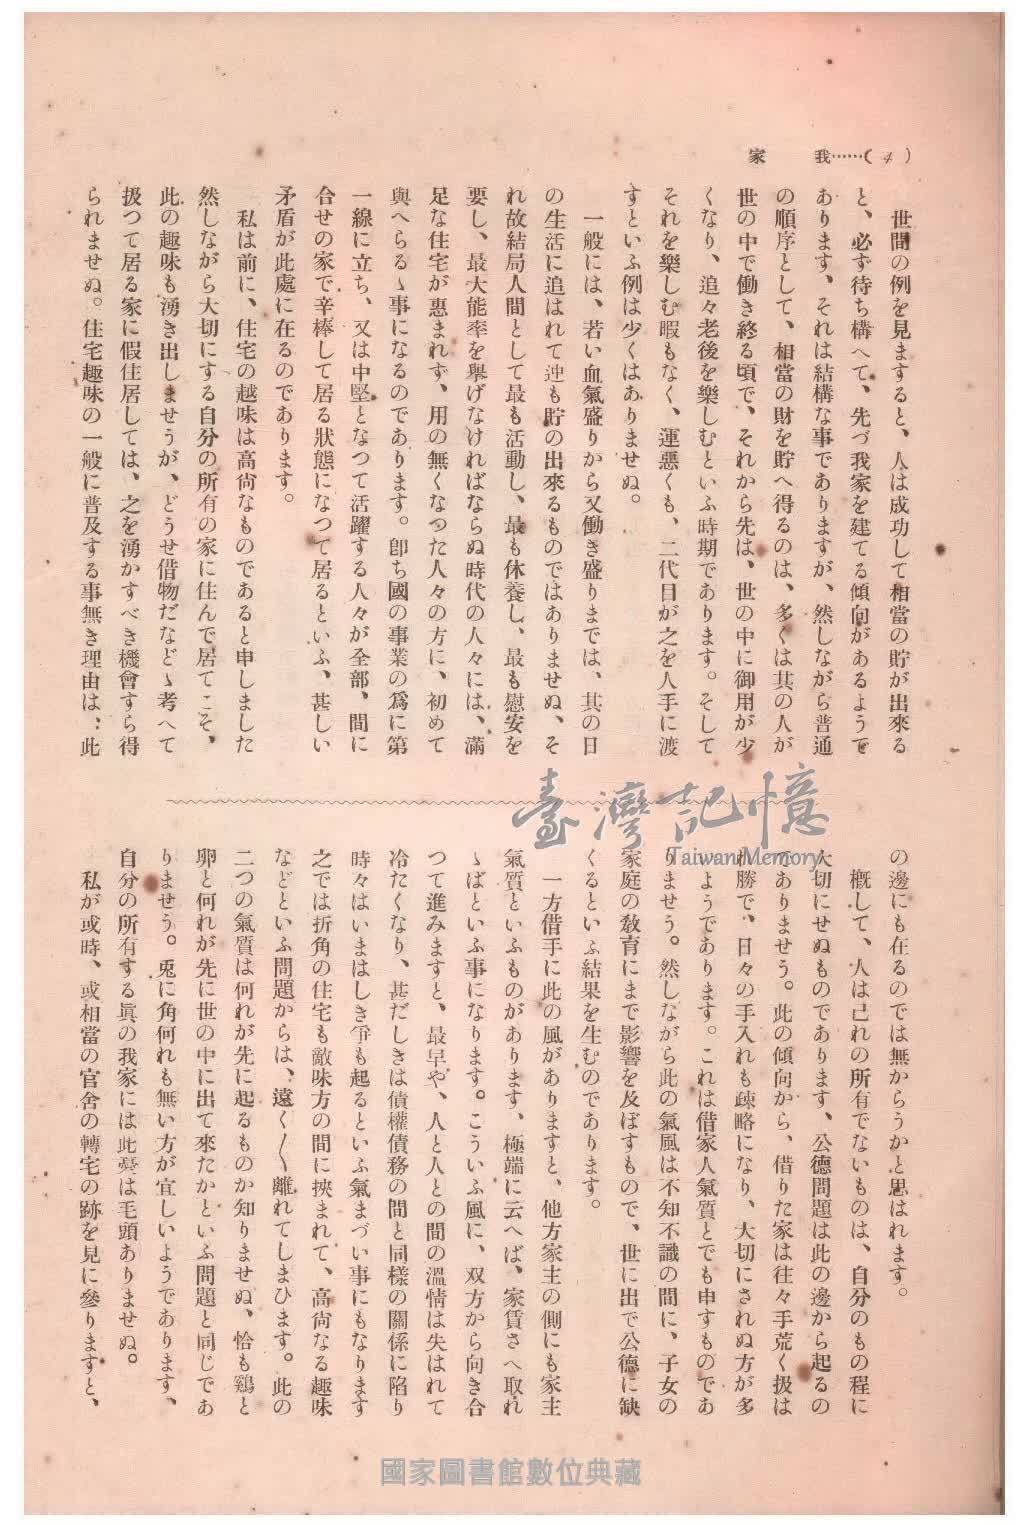 家　　我……( 4 )
世間の例を見ますると、人は成功して相當の貯が出來る
と、必ず待ち構へて、先づ我家を建てる傾向があるようで
あります、それは結構な事でありますが、然しながら普通
の順序として、相當の財を貯へ得るのは、多くは其の人が
世の中で働き終る頃で、それから先は、世の中に御用が少
くなり、追々老後を樂しむといふ時期であります。そして
それを樂しむ暇もなく、運悪くも、二代目が之を人手に渡
すといふ例は少くはありませぬ。
一般には、若い血氣盛りから又働き盛りまでは、其の日
の生活に追はれて迚も貯の出來るものではありませぬ、そ
れ故結局人間として最も活動し、最も休養し、最も慰安を
要し、最大能率を擧げなければならぬ時代の人々には、滿
足な住宅が惠まれず、用の無くなつた人々の方に、初めて
與へらるゝ事になるのであります。卽ち國の事業の爲に第
一線に立ち、又は中堅となつて活躍する人々が全部、間に
合せの家で辛棒して居る狀態になつて居るといふ、甚しい
矛盾が此處に在るのであります。
私は前に、住宅の越味は高尙なものであると申しました
然しながら大切にする自分の所有の家に住んで居てこそ、
此の趣味も湧き出しませうが、どうせ借物だなどゝ考へて
扱つて居る家に假住居しては、之を湧かすべき機會すら得
られませぬ。住宅趣味の一般に普及する事無き理由は、此
の邊にも在るのでは無からうかと思はれます。
概して、人は己れの所有でないものは、自分のもの程に
大切にせぬものであります、公德問題は此の邊から起るの
でありませう。此の傾向から、借りた家は往々手荒く扱は
れ勝で、日々の手入れも疎略になり、大切にされぬ方が多
いようであります。これは借家人氣質とでも申すものであ
りませう。然しながら此の氣風は不知不識の間に、子女の
家庭の敎育にまで影響を及ぼすもので、世に出で公德に缺
くるといふ結果を生むのであります。
一方借手に此の風がありますと、他方家主の側にも家主
氣質といふものがあります、極端に云へば、家賃さへ取れ
ゝばといふ事になります。こういふ風に、双方から向き合
つて進みますと、最早や、人と人との間の溫情は失はれて
冷たくなり、甚だしきは債權債務の間と同樣の關係に陷り
時々はいまはしき爭も起るといふ氣まづい事にもなります
之では折角の住宅も敵味方の間に挾まれて、高尙なる趣味
などといふ問題からは、遠く〱離れてしまひます。此の
二つの氣質は何れが先に起るものか知りませぬ、恰も鷄と
卵と何れが先に世の中に出て來たかといふ問題と同じであ
りませう。兎に角何れも無い方が宜しいようであります、
自分の所有する眞の我家には此憂は毛頭ありませぬ。
私が或時、或相當の官舍の轉宅の跡を見に參りますと、
臺灣記憶
Taiwan Memory
國家圖書館數位典藏